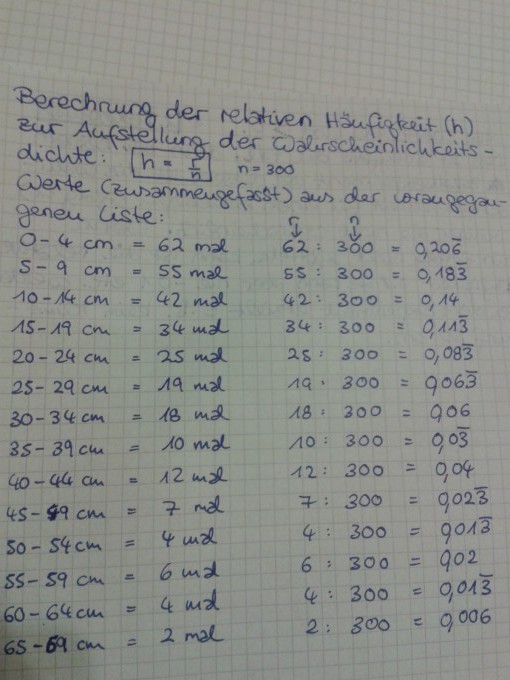 Berechnung der relativen Häufigkeit (h)
zur Aufstellung der Wahrscheinlichkeits-
dichte: h = r/n n = 300
Werte (zusammengefasst) aus der vorangegan-
genen Liste: r n
↓ ↓
0-4 cm = 62 mal 62 : 300 = 0,206̅
5-9 cm = 55 mal 55 : 300 = 0,183̅
10-14 cm = 42 mal 42 : 300 = 0,14
15-19 cm = 34 mal 34 : 300 = 0,113̅
20-24 cm = 25 mal 25 : 300 = 0,083̅
25-29 cm = 19 mal 19 : 300 = 0,063̅
30-34 cm = 18 mal 18 : 300 = 0,06
35-39 cm = 10 mal 10 : 300 = 0,03̅
40-44 cm = 12 mal 12 : 300 = 0,04
45-49 cm = 7 mal 7 : 300 = 0,023̅
50-54 cm = 4 mal 4 : 300 = 0,013̅
55-59 cm = 6 mal 6 : 300 = 0,02
60-64 cm = 4 mal 4 : 300 = 0,013̅
65-69 cm = 2 mal 2 : 300 = 0,006